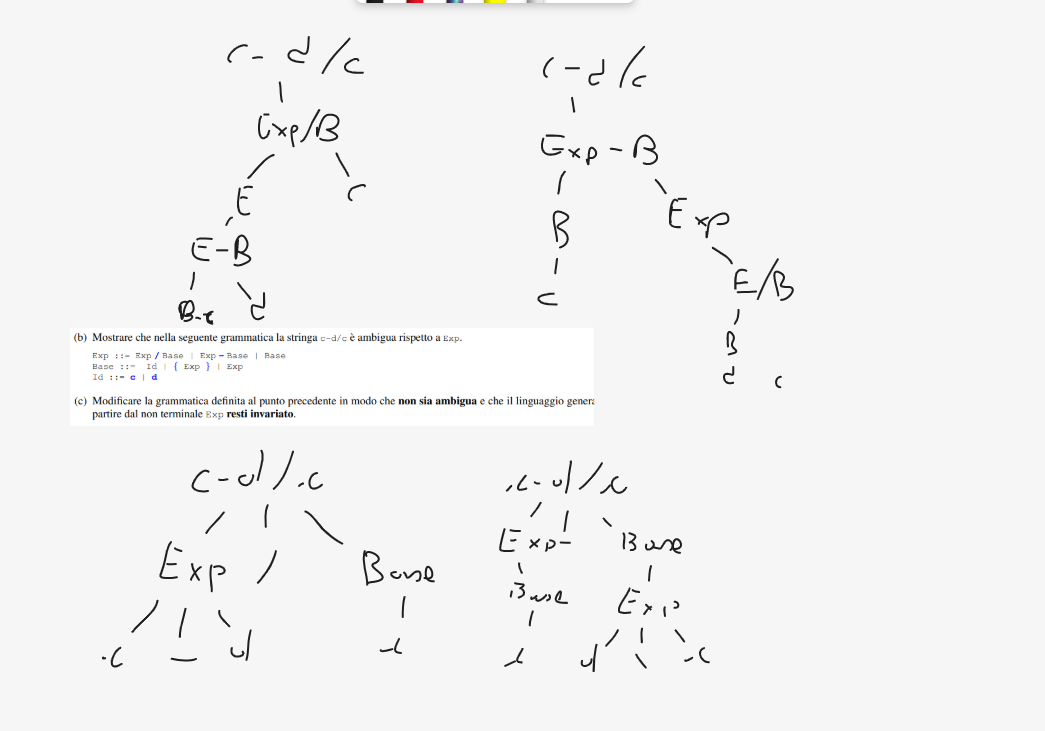 c - d / c
Exp/B
E c
E-B
B-c d
c - d / c
Exp - B
B Exp
c E/B
B
d c
(b) Mostrare che nella seguente grammatica la stringa c-d/c è ambigua rispetto a Exp.
Exp ::= Exp / Base | Exp - Base | Base
Base ::= Id | { Exp } | Exp
Id ::= c | d
(c) Modificare la grammatica definita al punto precedente in modo che non sia ambigua e che il linguaggio genera
partire dal non terminale Exp resti invariato.
c - d / c
Exp / Base
c - d c
c - d / c
Exp - Base
Base Exp
c d \ c